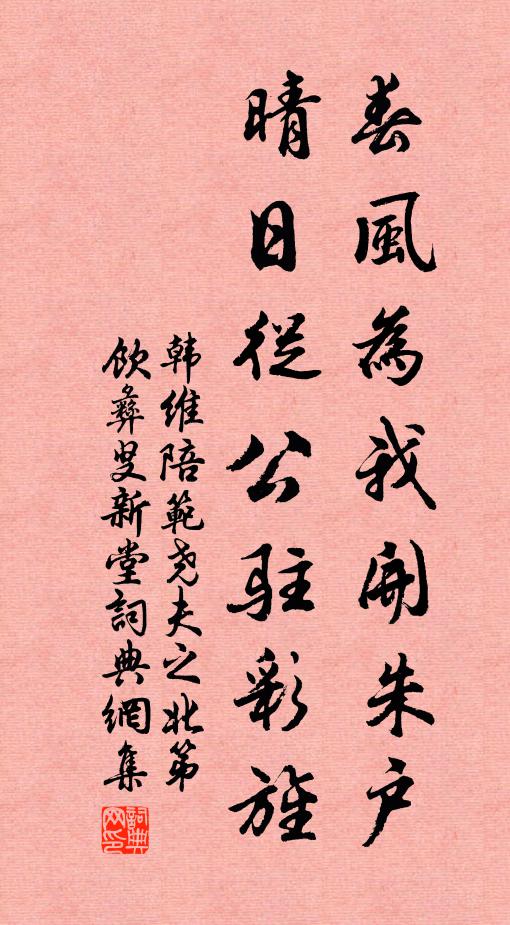 春風為我開朱户
晴日從公駐彩旌
韩維陪範尧夫之北第
飲彝叟新堂詞典網集
詞典网印